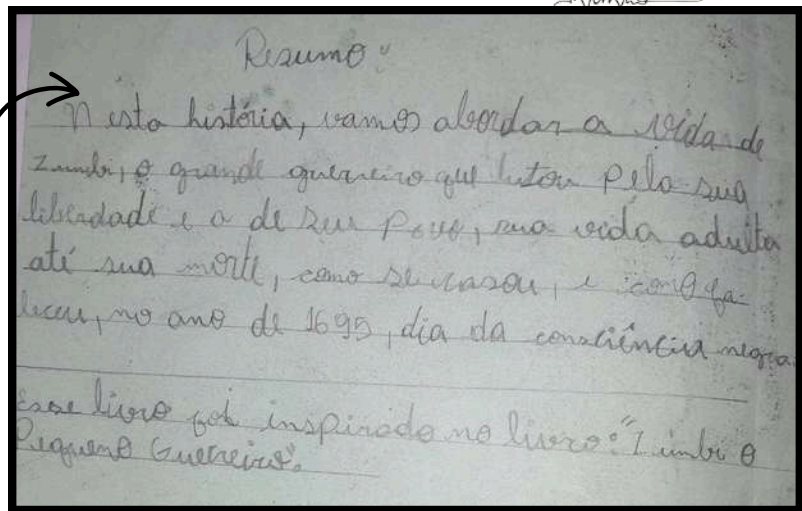 Resumo:
Nesta história, vamos abordar a vida de
Zumbi, o grande guerreiro que lutou pela sua
liberdade e a de seu Povo, sua vida adulta
até sua morte, como se casou, e como fa-
leceu, no ano de 1695, dia da consciência negra.
Esse livro foi inspirado no livro: "Zumbi o
Pequeno Guerreiro".